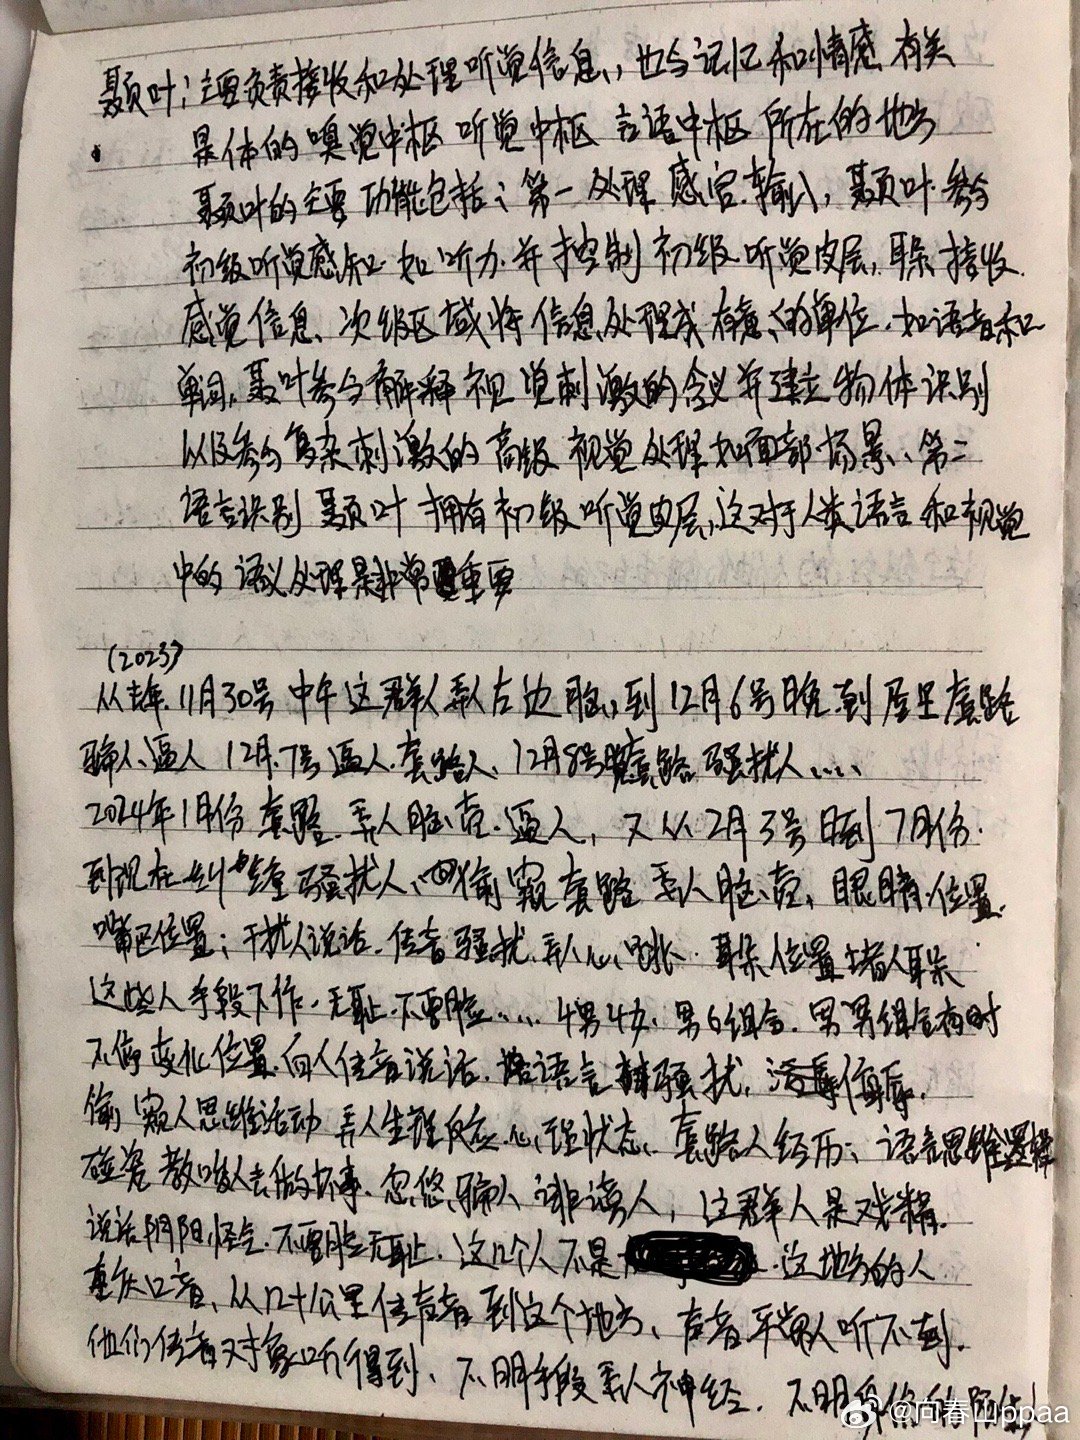 颞叶：主要负责接收和处理听觉信息，也与记忆和情感有关
是体的嗅觉中枢 听觉中枢 言语中枢 所在的地方
颞叶的主要功能包括：第一处理感官输入，颞叶参与
初级听觉感知.如听力.并控制初级听觉皮层，耳朵接收
感觉信息、次级区域将信息处理成有意义的单位.如语音和
单词，颞叶参与解释视觉刺激的含义并建立物体识别
以及参与复杂刺激的高级视觉处理如面部场景、第二
语言识别 颞叶拥有初级听觉皮层，这对于人类语言和视觉
中的语义处理是非常重要
(2023)
从去年11月30号中午这群人弄人左边脑，到12月6号晚到屋里套路
骗人、逼人12月.7号逼人.套路人、12月8号套路骚扰人....
2024年1月份套路.弄人脑壳.逼人，又从2月3号到7月份.
到现在纠缠骚扰人、偷窥套路弄人脑壳，眼睛.位置.
嘴巴位置；干扰人说话.传音骚扰.弄人心跳.耳朵位置堵人耳朵
这些人手段下作.无耻.不要脸.....4男4女.男6组合.男男组合有时
不停变化位置.向人传音说话.语言骚扰，侮辱.
偷窥人思维活动 弄人生理反应心理状态、套路人经历；语言思维逻辑
碰瓷教唆人去做坏事.忽悠、骗人诽谤人，这群人是戏精.
说话阴阳怪气.不要脸无耻.这几个人不是 .这地方的人
重庆口音、从几十公里传声音到这个地方、声音平常人听不到.
他们传音对象听得到、不明手段弄人神经.不明
@向春山ppaa